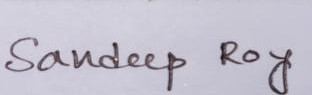 Sandeep Roy